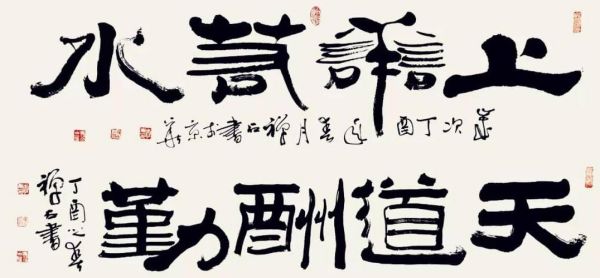 上善若水
歲次丁酉春月禪石書於京華
天道酬勤
丁酉之春
禪石書